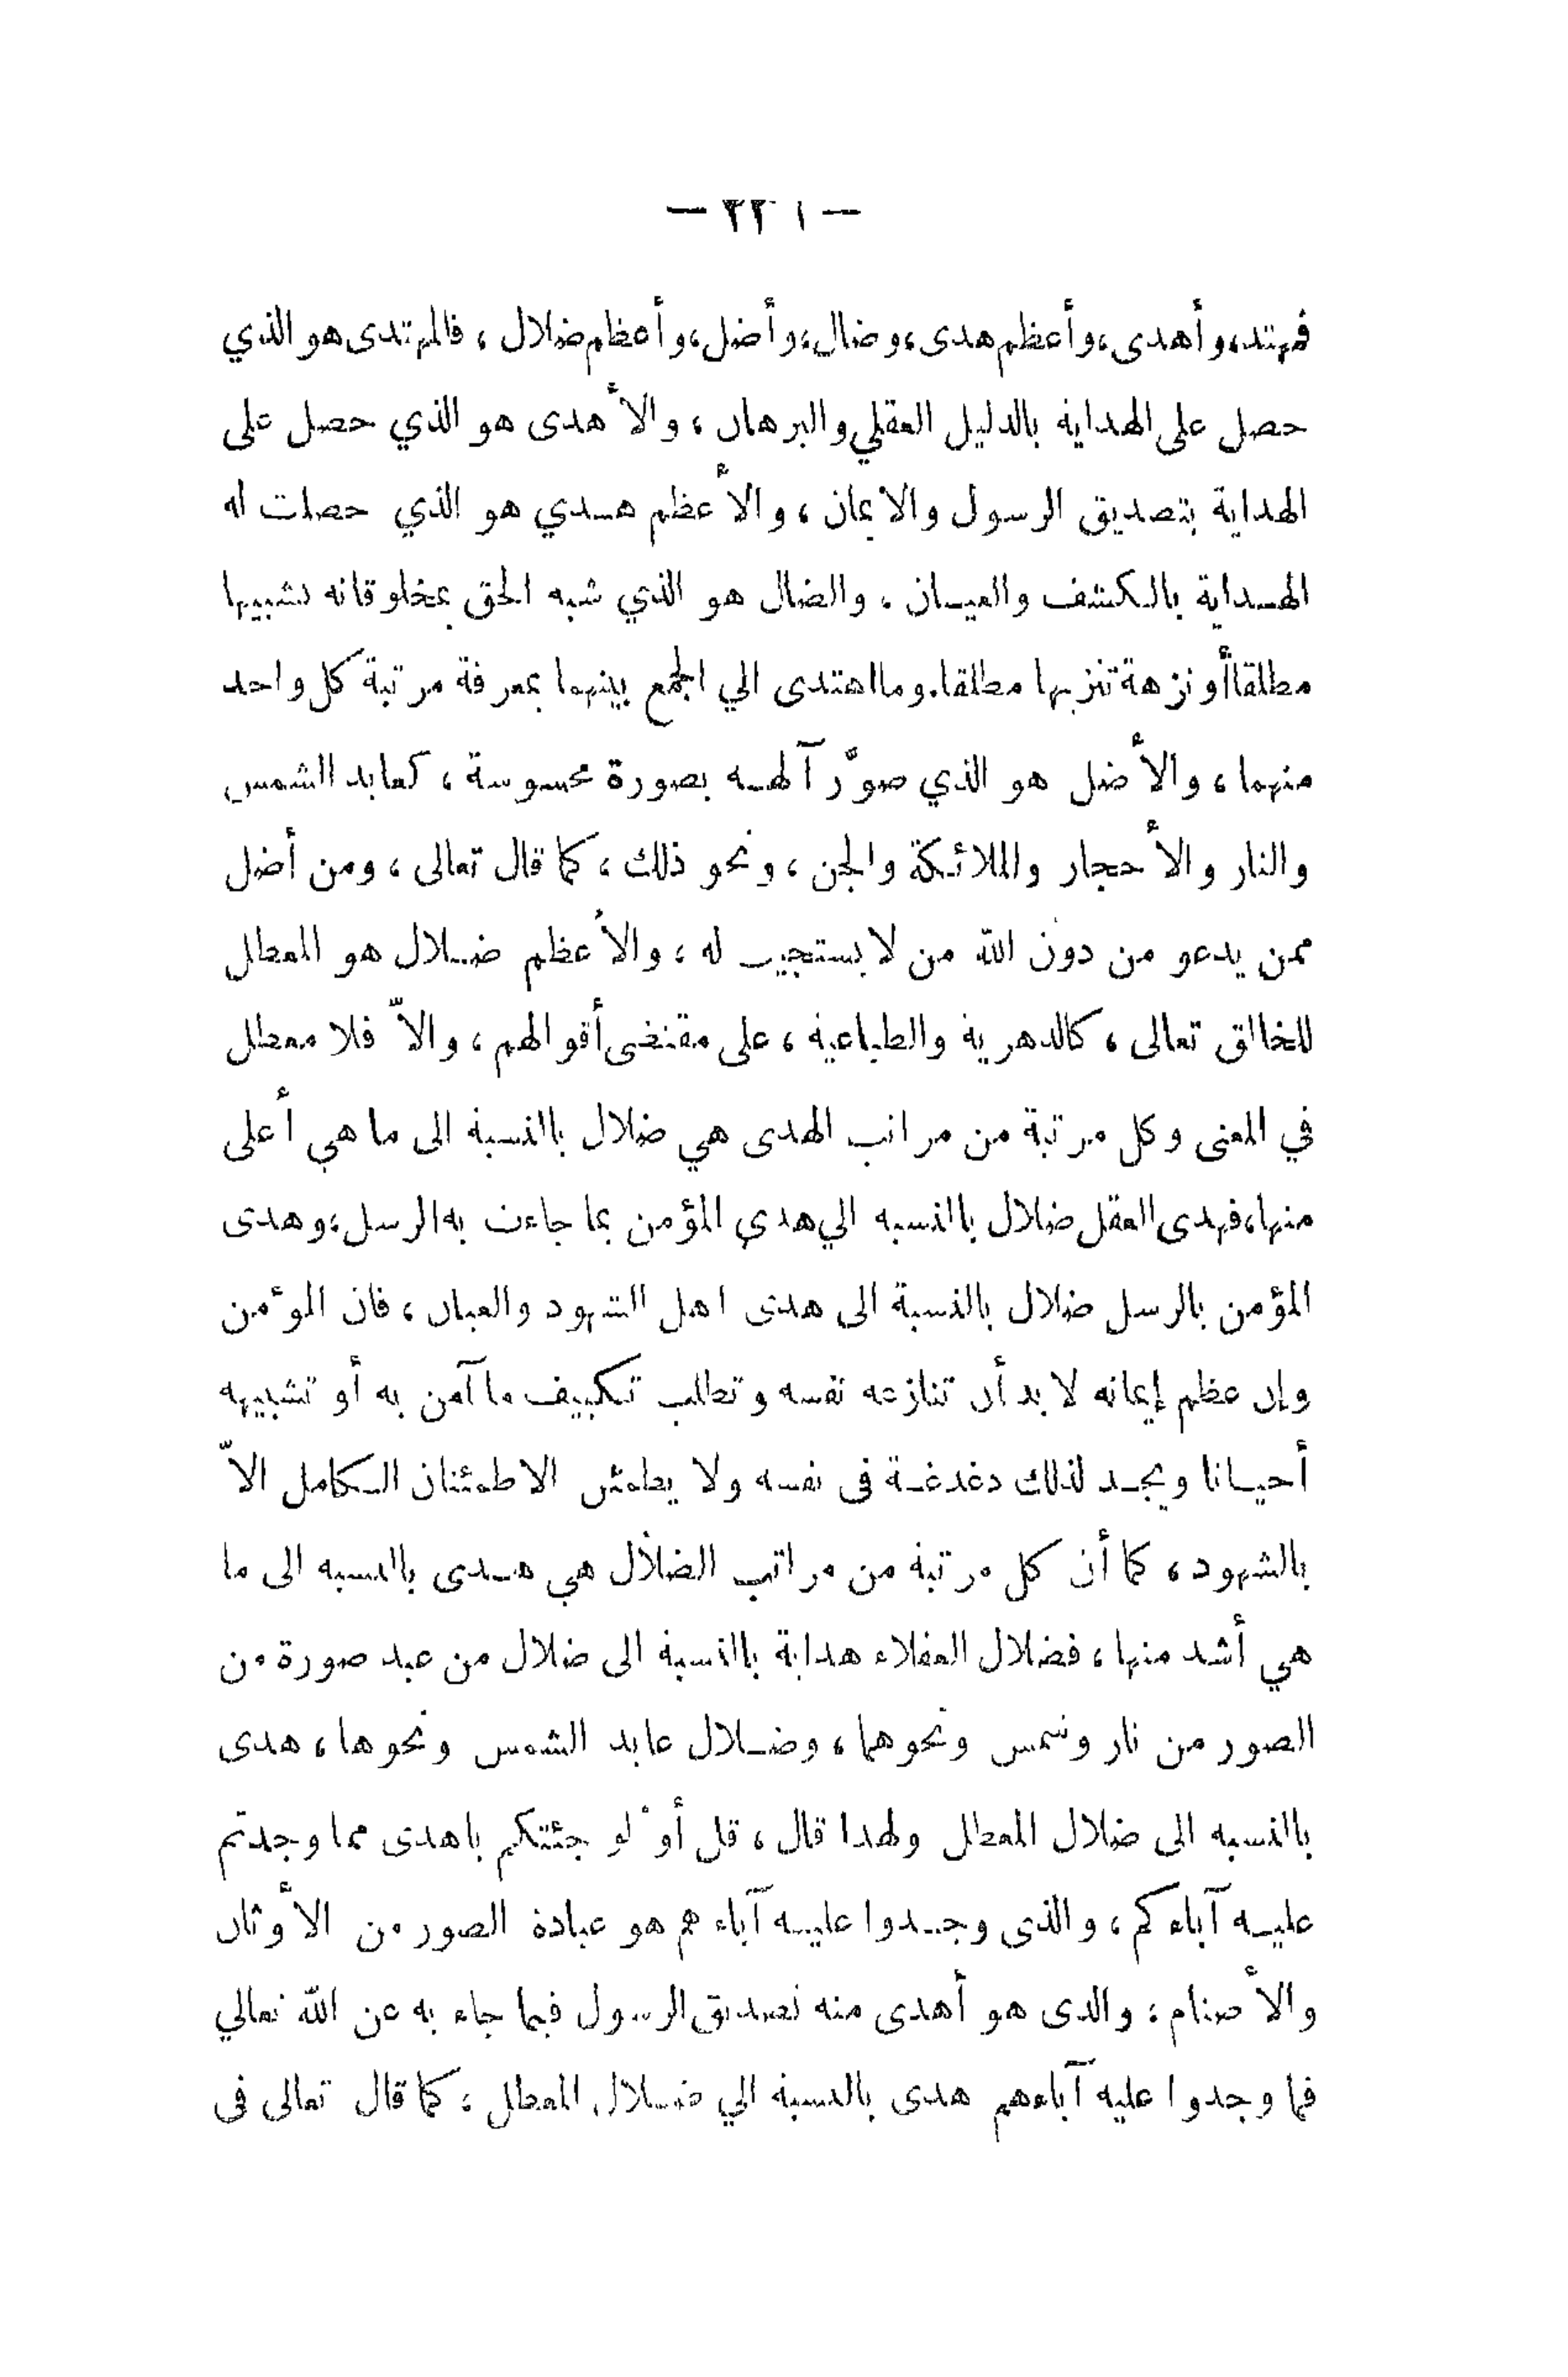 — ٢٢١ —
فمهتد، وأهدى، وأعظم هدى، وضال، وأضل، وأعظم ضلال، فالمهتدى هو الذي
حصل على الهداية بالدليل العقلي والبرهان، والأهدى هو الذي حصل على
الهداية بتصديق الرسول والايمان، والأعظم هدي هو الذي حصلت له
الهداية بالكشف والعيان، والضال هو الذي شبه الحق بمخلوقاته تشبيها
مطلقاأو نزهة تنزيها مطلقا. وما اهتدى الي الجمع بينهما بمعرفة مرتبة كل واحد
منهما، والأضل هو الذي صوّر آلهه بصورة محسوسة، كعابد الشمس
والنار والأحجار والملائكة والجن، ونحو ذلك، كما قال تعالى، ومن أضل
ممن يدعو من دون الله من لا يستجيب له، والأعظم ضلال هو المعطل
للخالق تعالى، كالدهرية والطباعية، على مقتضى أقوالهم، والاّ فلا معطل
في المعنى وكل مرتبة من مراتب الهدى هي ضلال بالنسبة الى ما هي أعلى
منها، فهدى العقل ضلال بالنسبه الي هدي المؤمن بما جاءت به الرسل، وهدى
المؤمن بالرسل ضلال بالنسبة الى هدى اهل الشهود والعيان، فان المؤمن
وإن عظم إيمانه لا بد أن تنازعه نفسه وتطلب تكييف ما آمن به أو تشبيهه
أحيانا ويجد لذلك دغدغة فى نفسه ولا يطمئن الاطمئنان الكامل الاّ
بالشهود، كما أن كل مرتبة من مراتب الضلال هي هدى بالنسبه الى ما
هي أشد منها، فضلال العقلاء هداية بالنسبة الى ضلال من عبد صورة من
الصور من نار وشمس ونحوهما، وضلال عابد الشمس ونحوها، هدى
بالنسبه الى ضلال المعطل ولهذا قال، قل أوْ لو جئتكم باهدى مما وجدتم
عليه آباءكم، والذى وجدوا عليه آباءهم هو عبادة الصور من الأوثان
والأصنام، والذى هو أهدى منه تصديق الرسول فيما جاء به عن الله تعالي
فما وجدوا عليه آباءهم هدى بالنسبة الي ضلال المعطل، كما قال تعالى فى